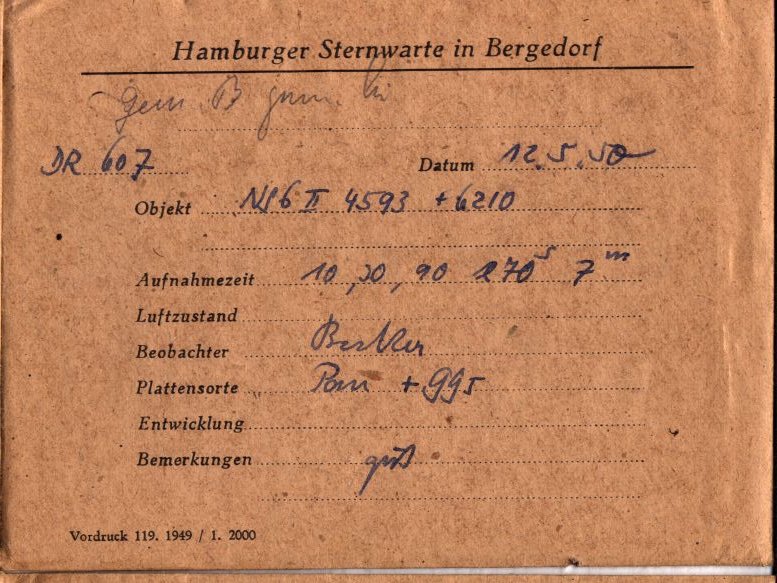 Hamburger Sternwarte in Bergedorf
Gem. B
DR 607 Datum 12.5.50
Objekt II 4593 + 6210
Aufnahmezeit 10, 30, 90 270s 7m
Luftzustand
Beobachter
Plattensorte Pan + GG5
Entwicklung
Bemerkungen gut
Vordruck 119. 1949 / 1. 2000